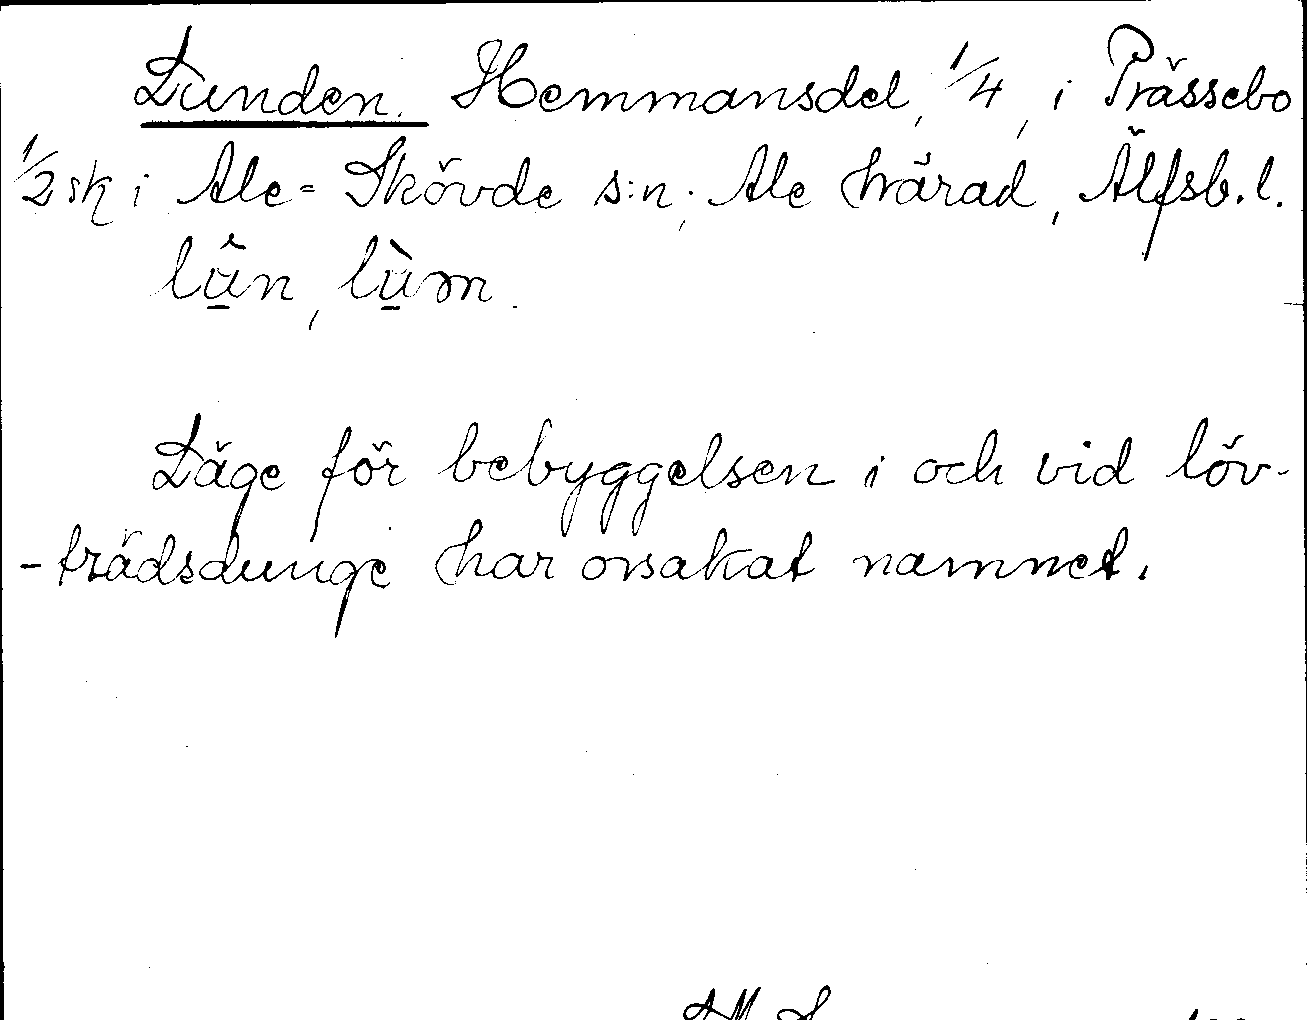 Lunden. Hemmansdel, 1/4, i Prässebo
1/2 sk i Ale-Skövde s:n, Ale härad, Älfsb. l.
lûn, lùm.
Läge för bebyggelsen i och vid löv-
-trädsdunge har orsakat namnet.